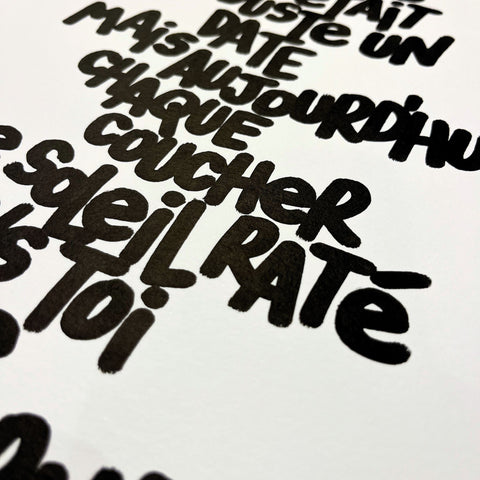 ÉTAIT
JUSTE UN
DATE
MAIS AUJOURD'HU
CHAQUE
COUCHER
E SOLEIL RATÉ
S TOI